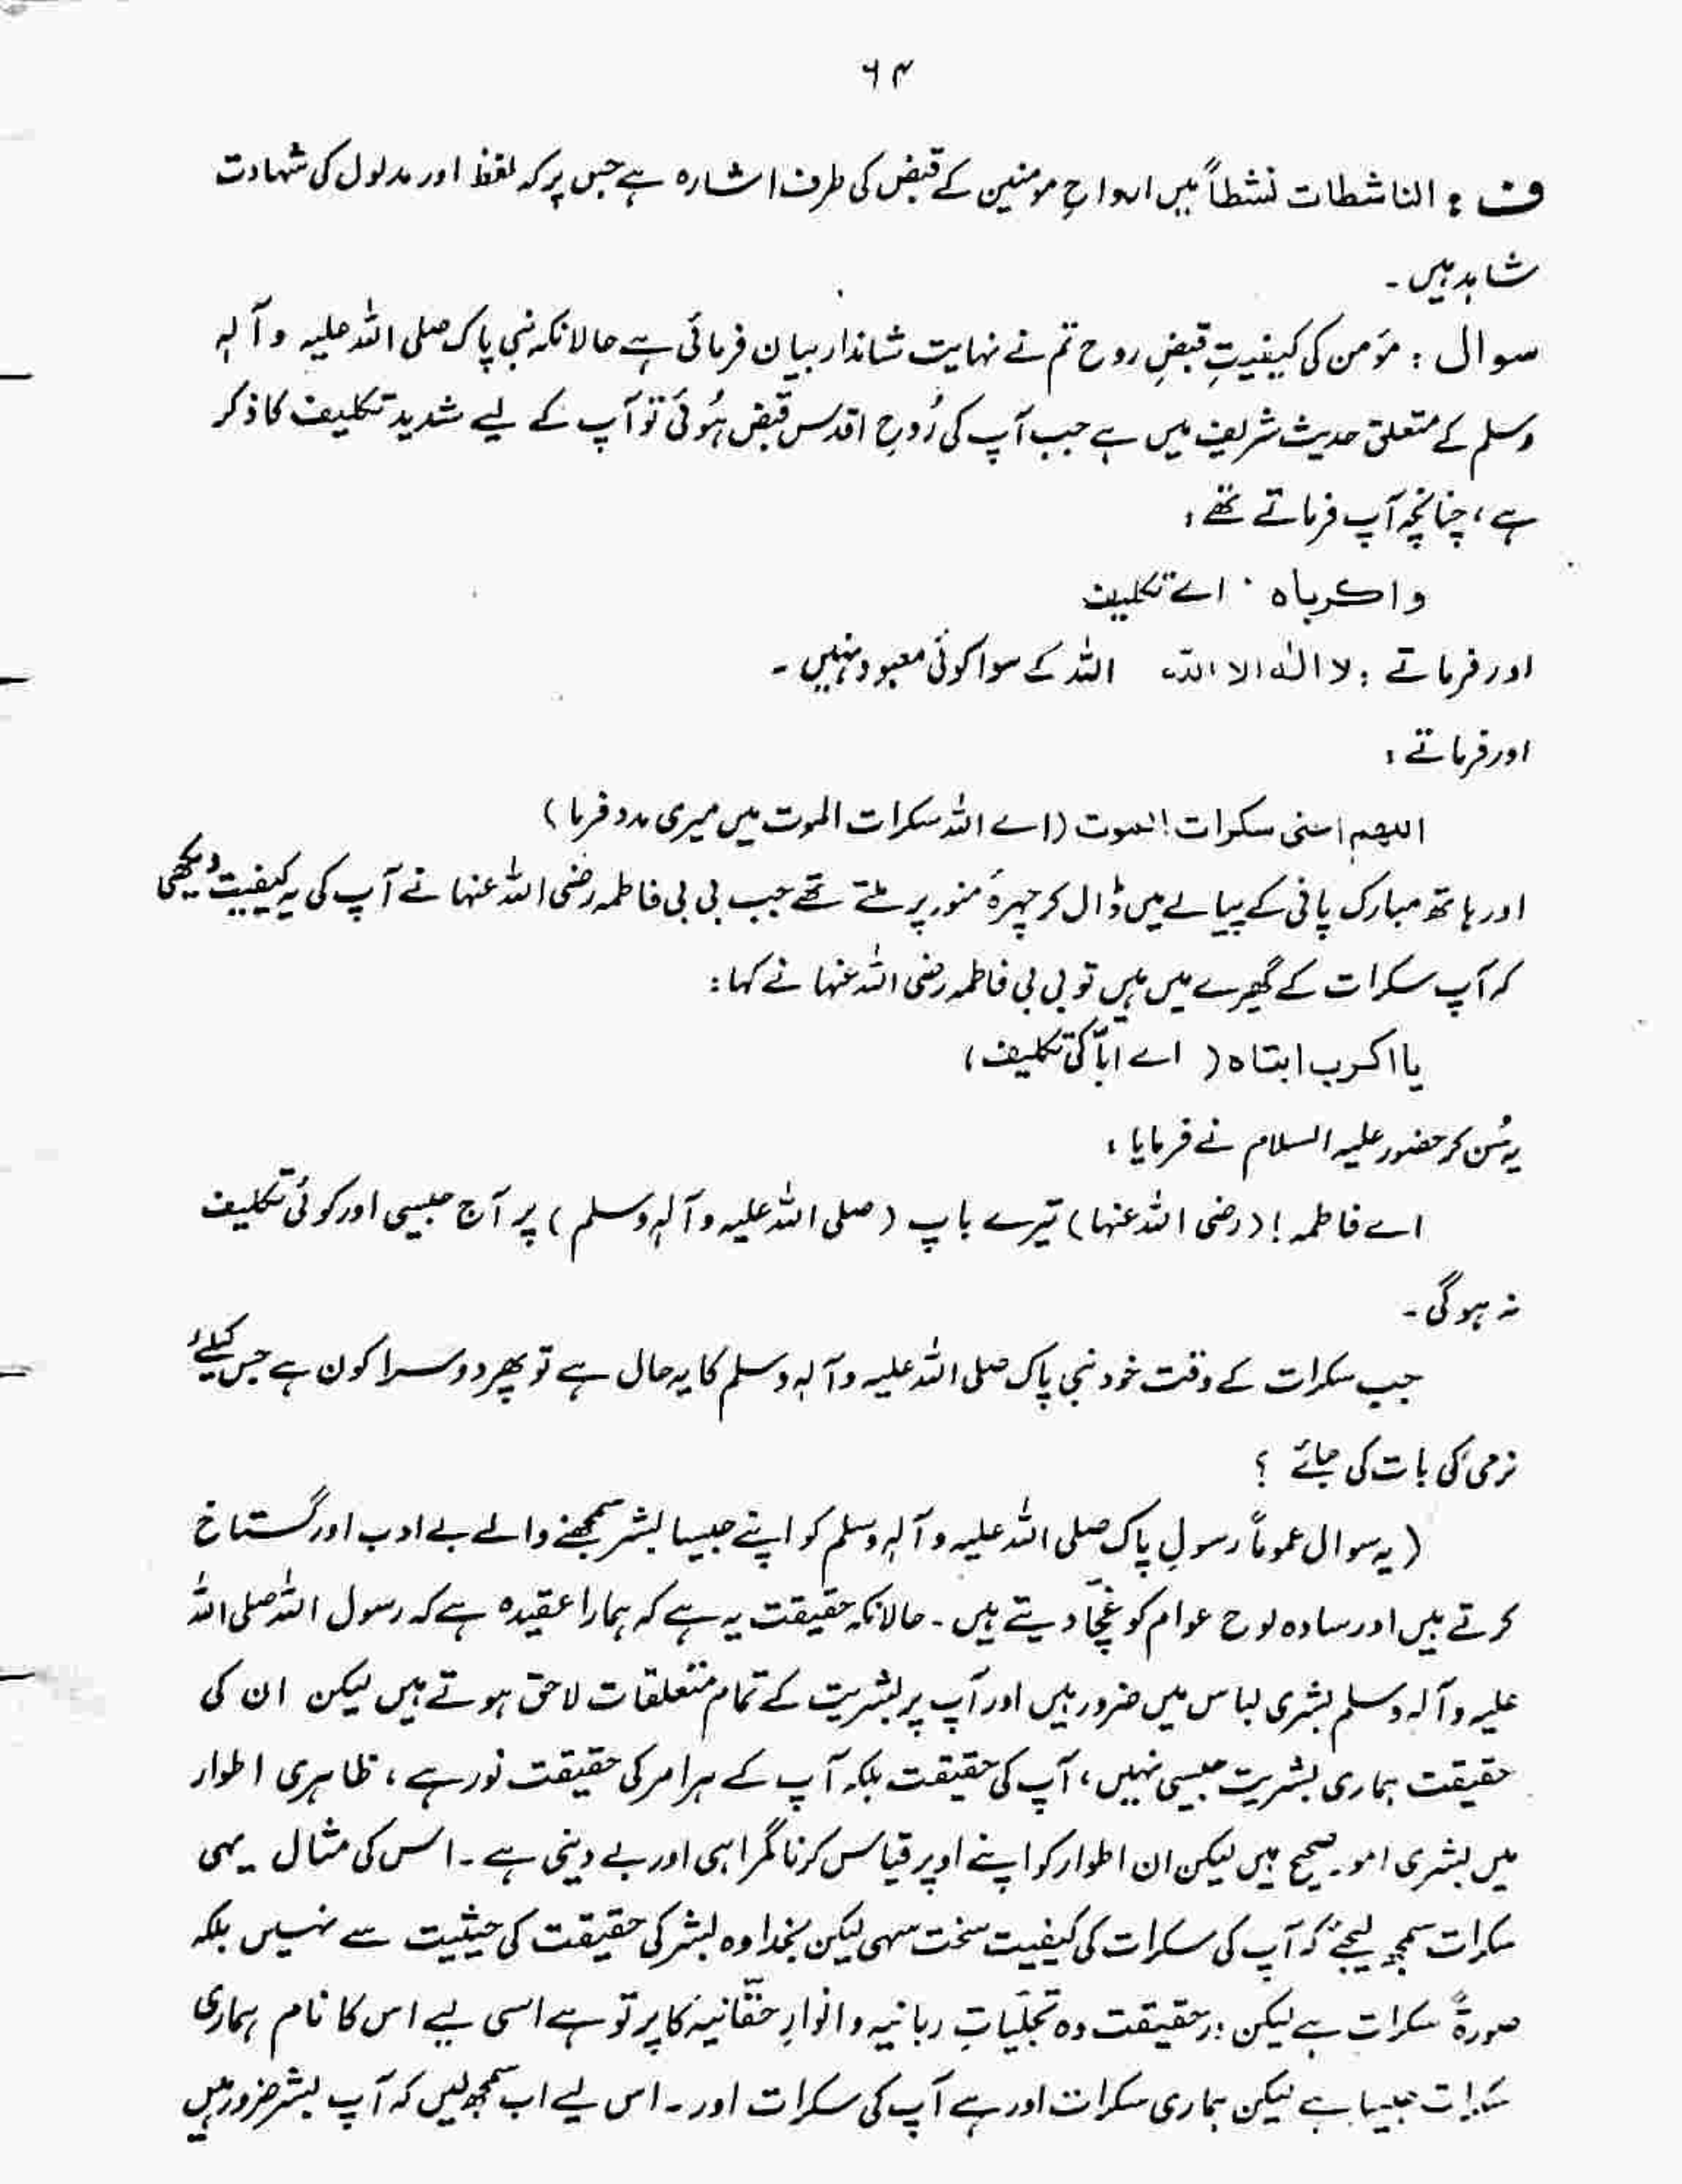 ۶۴
ف : الناشطات نشطاً میں ارواحِ مومنین کے قبض کی طرف اشارہ ہے جس پر کہ لفظ اور مدلول کی شہادت
شاہد ہیں ۔
سوال : مؤمن کی کیفیتِ قبضِ روح تم نے نہایت شاندار بیان فرمائی ہے حالانکہ نبی پاک صلی اللہ علیہ وآلہٖ
وسلم کے متعلق حدیث شریف میں ہے جب آپ کی رُوحِ اقدس قبض ہُوئی تو آپ کے لیے شدید تکلیف کا ذکر
ہے ، چنانچہ آپ فرماتے تھے :
واکرباہ ۔ اے تکلیف
اور فرماتے : لا الٰہ الا اللہ اللہ کے سوا کوئی معبود نہیں ۔
اور فرماتے :
اللھم اعنی سکرات الموت (اے اللہ سکرات الموت میں میری مدد فرما)
اور ہاتھ مبارک پانی کے پیالے میں ڈال کر چہرۂ منور پر ملتے تھے جب بی بی فاطمہ رضی اللہ عنہا نے آپ کی یہ کیفیت دیکھی
کہ آپ سکرات کے گھیرے میں ہیں تو بی بی فاطمہ رضی اللہ عنہا نے کہا :
یا اکرب ابتاہ ( اے ابّا کی تکلیف )
یہ سُن کر حضور علیہ السلام نے فرمایا :
اے فاطمہ ! (رضی اللہ عنہا) تیرے باپ (صلی اللہ علیہ وآلہٖ وسلم) پر آج جیسی اور کوئی تکلیف
نہ ہوگی ۔
جب سکرات کے وقت خود نبی پاک صلی اللہ علیہ وآلہٖ وسلم کا یہ حال ہے تو پھر دوسرا کون ہے جس کیلئے
نرمی کی بات کی جائے ؟
(یہ سوال عموماً رسولِ پاک صلی اللہ علیہ وآلہٖ وسلم کو اپنے جیسا بشر سمجھنے والے بے ادب اور گستاخ
کرتے ہیں اور سادہ لوح عوام کو غچّا دیتے ہیں ۔ حالانکہ حقیقت یہ ہے کہ ہمارا عقیدہ ہے کہ رسول اللہ صلی اللہ
علیہ وآلہٖ وسلم بشری لباس میں ضرور ہیں اور آپ پر بشریت کے تمام متعلقات لاحق ہوتے ہیں لیکن ان کی
حقیقت ہماری بشریت جیسی نہیں ، آپ کی حقیقت بلکہ آپ کے ہر امر کی حقیقت نور ہے ، ظاہری اطوار
میں بشری امور صحیح ہیں لیکن ان اطوار کو اپنے اوپر قیاس کرنا گمراہی اور بے دینی ہے ۔ اس کی مثال یہی
سکرات سمجھ لیجئے کہ آپ کی سکرات کی کیفیت سخت سہی لیکن بخدا وہ بشر کی حقیقت کی حیثیت سے نہیں بلکہ
صورۃً سکرات ہے لیکن درحقیقت وہ تجلّیاتِ ربانیہ و انوارِ حقّانیہ کا پرتو ہے اسی لیے اس کا نام ہماری
سکرات جیسا ہے لیکن ہماری سکرات اور ہے آپ کی سکرات اور ۔ اس لیے اب سمجھ لیں کہ آپ بشر ضرور ہیں